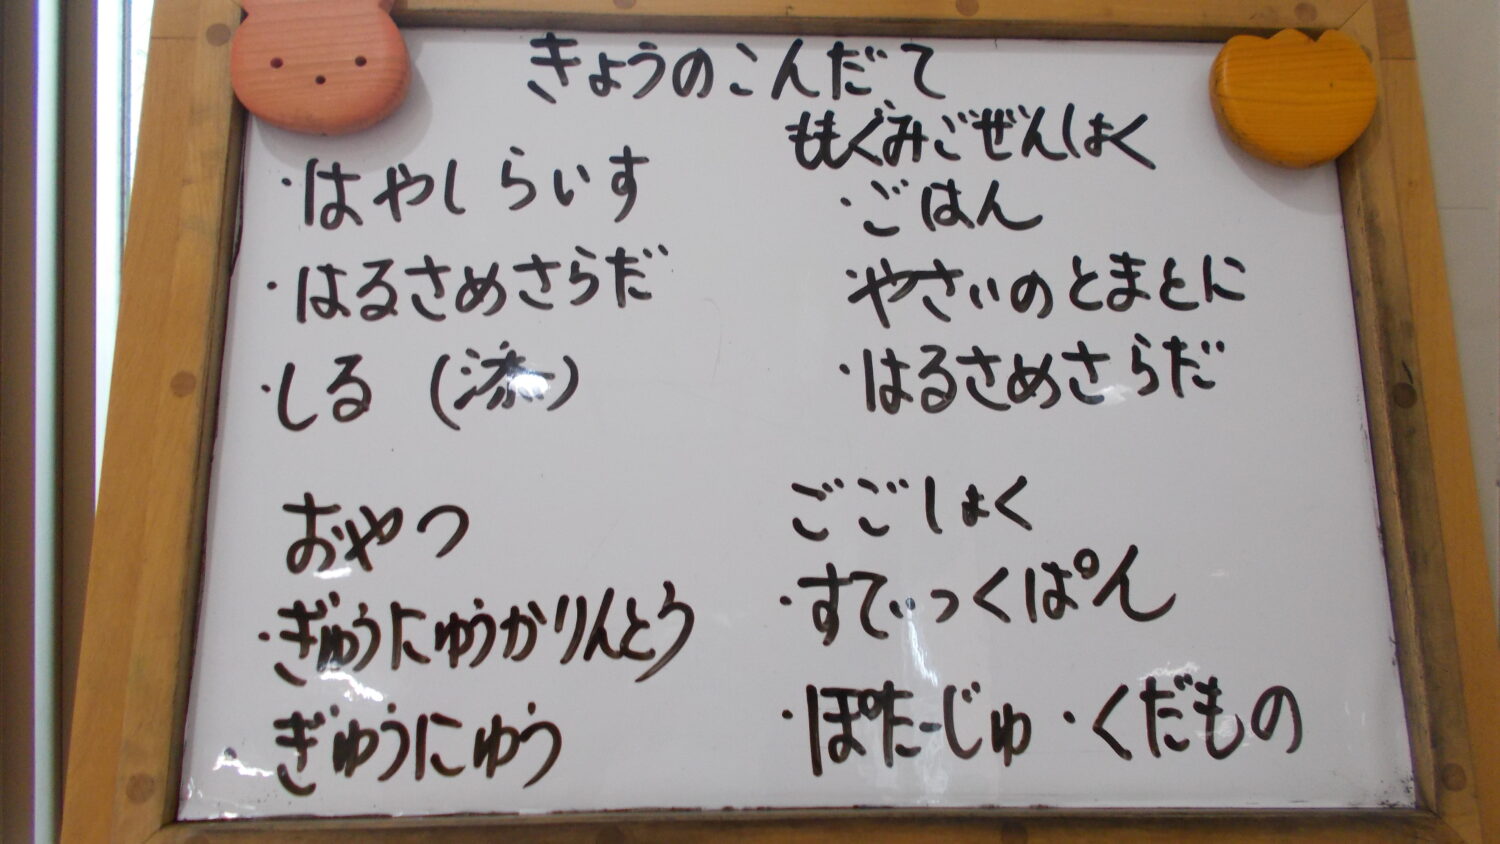 きょうのこんだて
・はやしらいす
・はるさめさらだ
・しる (添)
おやつ
・ぎゅうにゅうかりんとう
・ぎゅうにゅう
ももぐみごぜんしょく
・ごはん
・やさいのとまとに
・はるさめさらだ
ごごしょく
・すてぃっくぱん
・ぽたーじゅ・くだもの